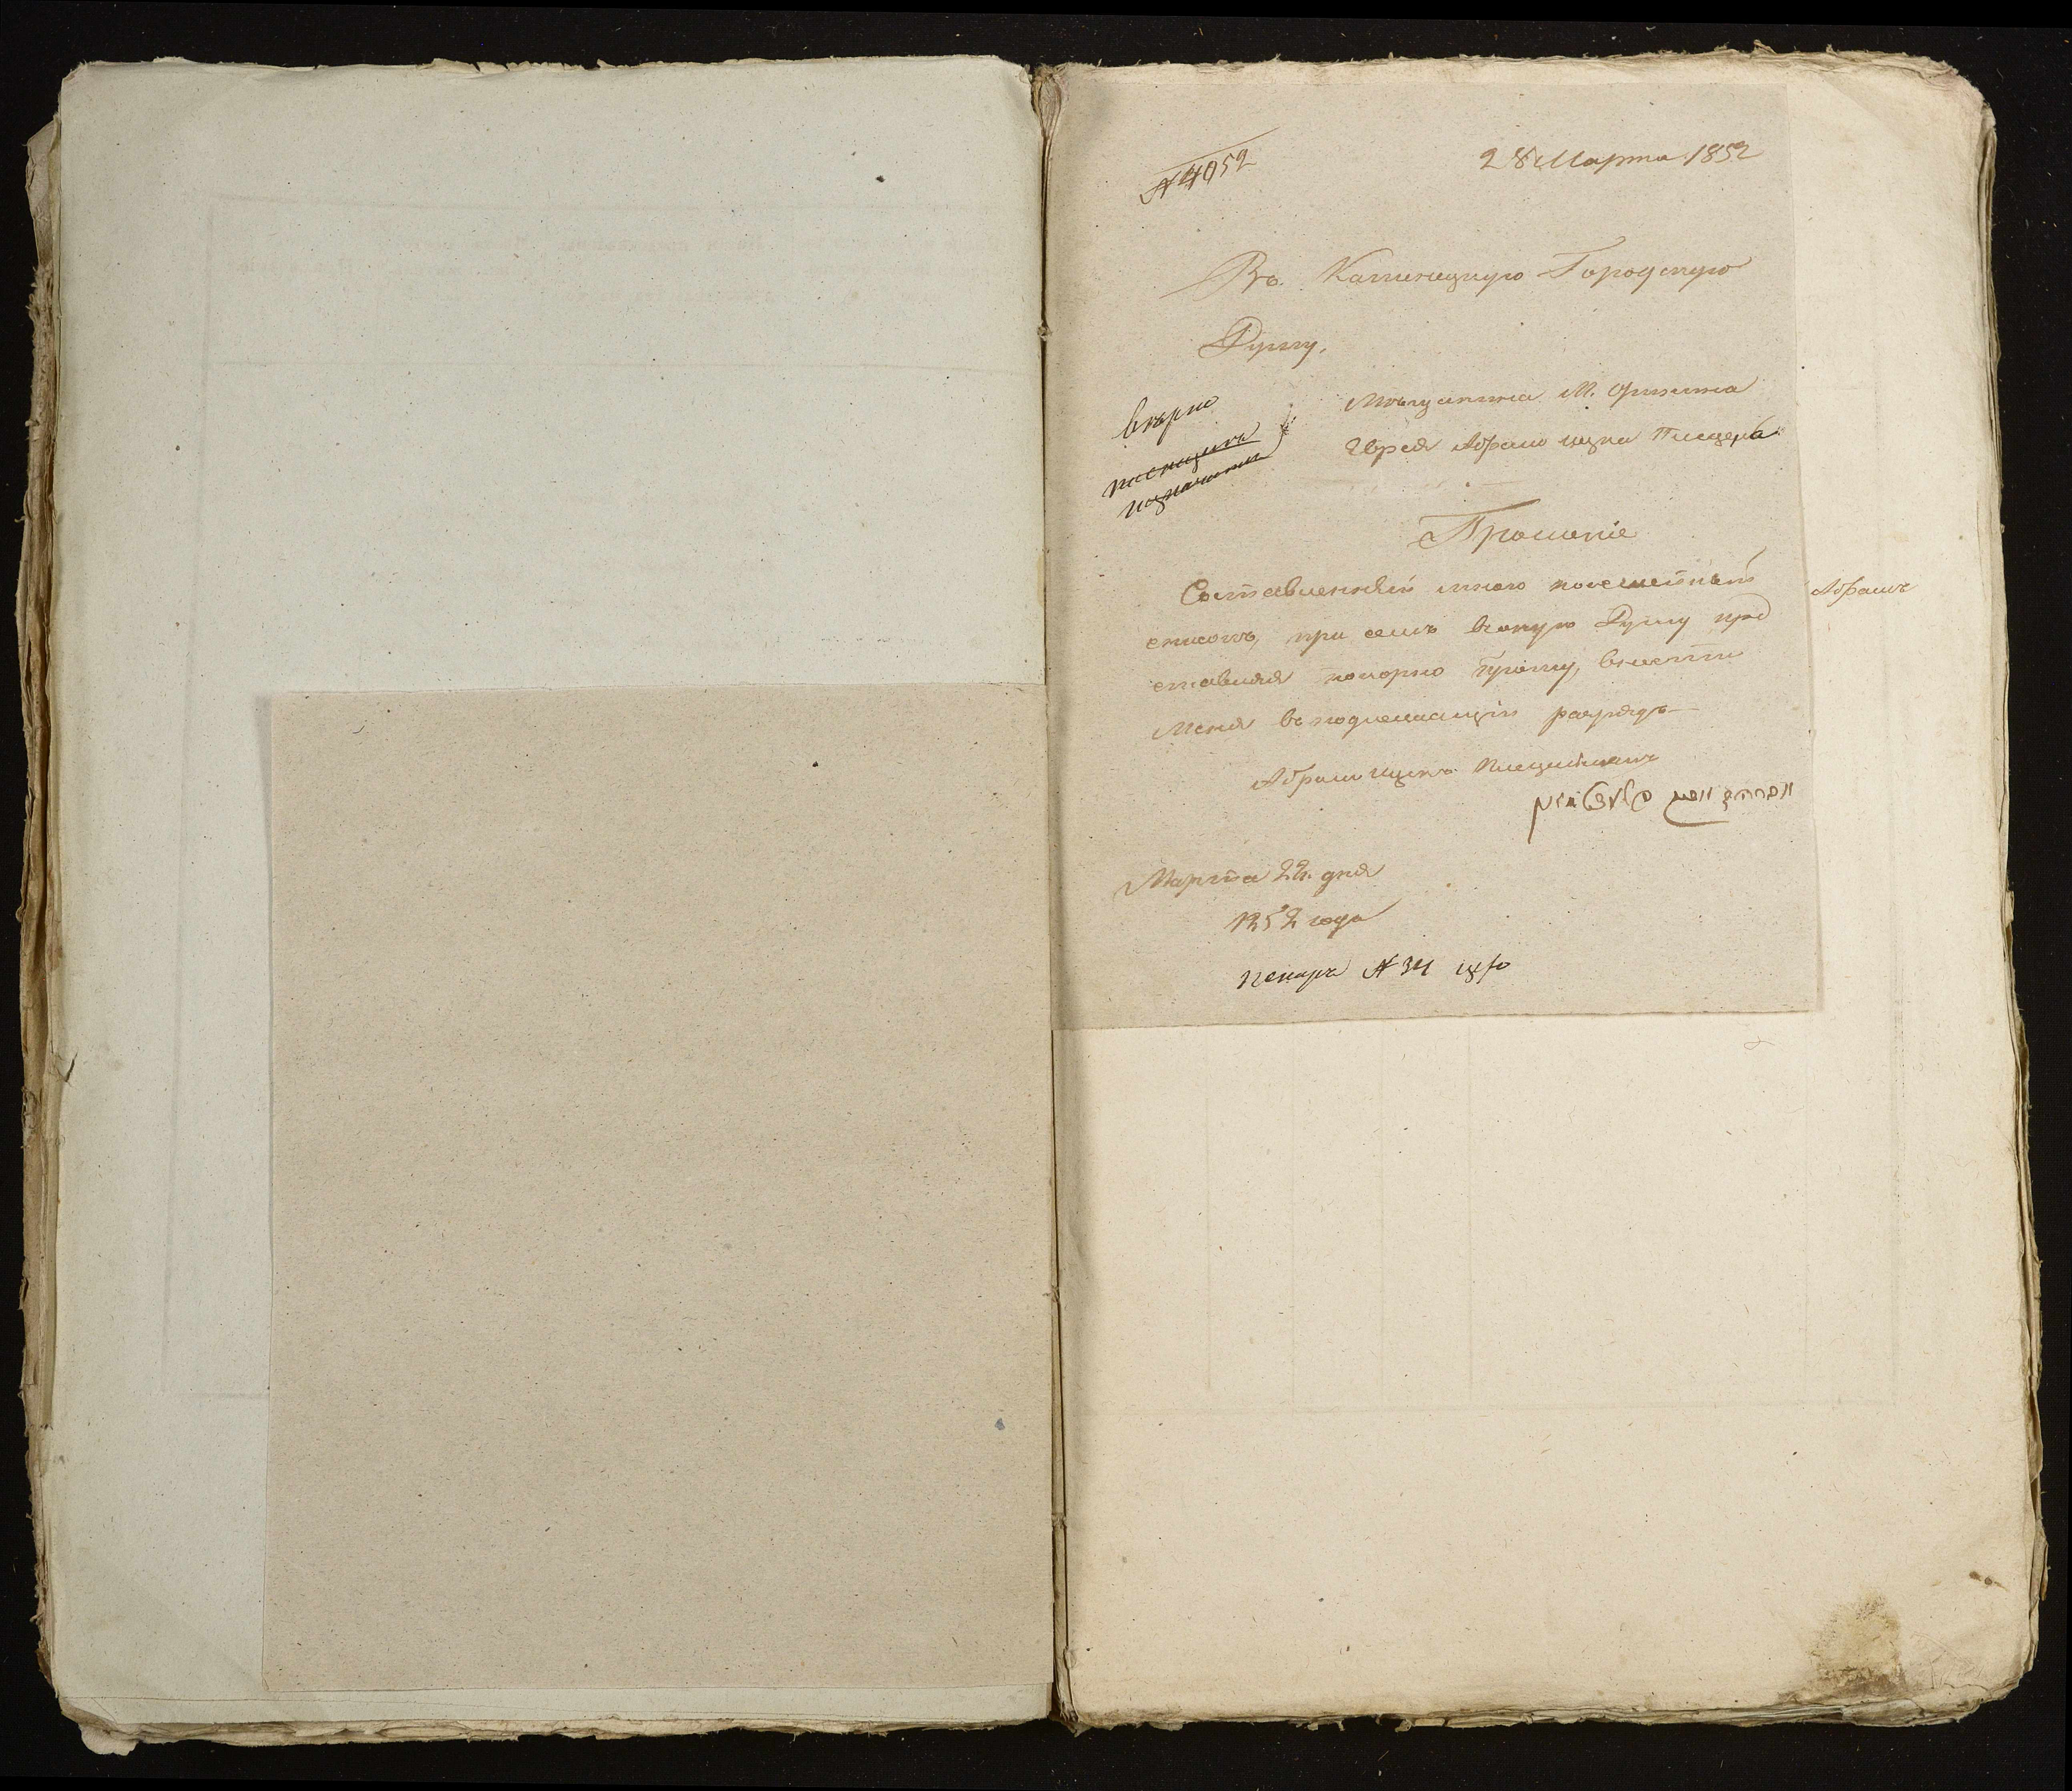 № 4052
28 Марта 1852
Въ Каменецкую Городскую
Думу,
Мѣщанина М. Фрижина
Еврея Абрамъ Ицка
вѣрно
Прошеніе
Составленный мною посемейный
списокъ, при семъ въ оную Думу пред
ставляя покорно прошу, внести
меня въ подлежащій разрядъ
Абрамъ
Абрамъ Ицекъ
Марта 28. дня
1852 года
пекарь № 34